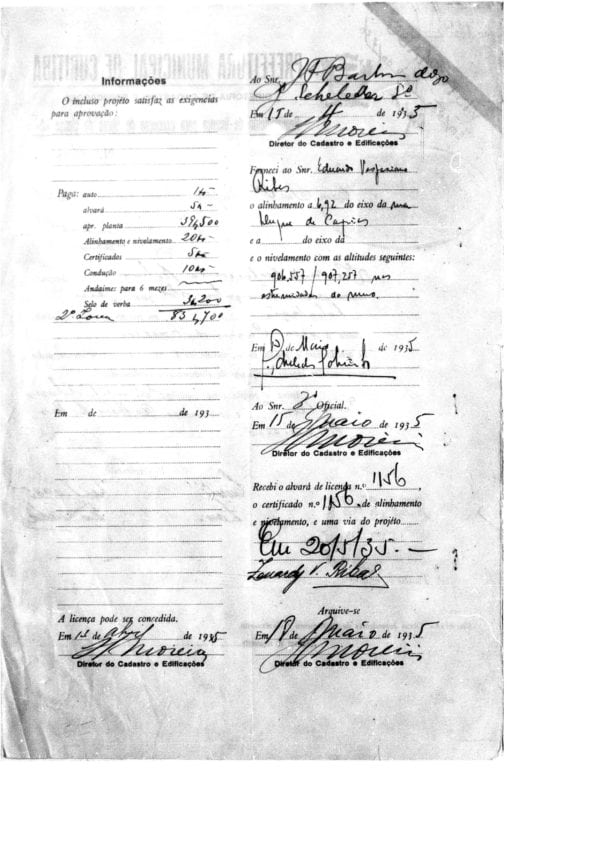 Informações
O incluso projéto satisfaz as exigencias
para aprovação:
Paga: auto
alvará
apr. planta 39$500
Alinhamento e nivelamento 20$-
Certificados 5$-
Condução 10$-
Andaimes para 6 mezes
Selo de verba 3$200
2ª Zona 83$700
Em de de 193
A licença pode ser concedida.
Em de abril de 1935
Moreira
Diretor do Cadastro e Edificações
Ao Snr.
J. Scheleder Sº
Em 15 de 4 de 1935
Moreira
Diretor do Cadastro e Edificações
Forneci ao Snr. Eduardo Vespasiano
Ribas
o alinhamento a 6,92 do eixo da rua
Duque de Caxias
e a do eixo da
e o nivelamento com as altitudes seguintes:
906,557 / 907,257 nas
extremidades do muro.
Em de Maio de 1935
Ao Snr. 2º Oficial.
Em 15 de Maio de 1935
Moreira
Diretor do Cadastro e Edificações
Recebi o alvará de licença n.º 1156
o certificado n.º 1156 de alinhamento
e nivelamento, e uma via do projéto
Em 20/5/35. —
V. Ribas
Arquive-se
Em 18 de Maio de 1935
Moreira
Diretor do Cadastro e Edificações